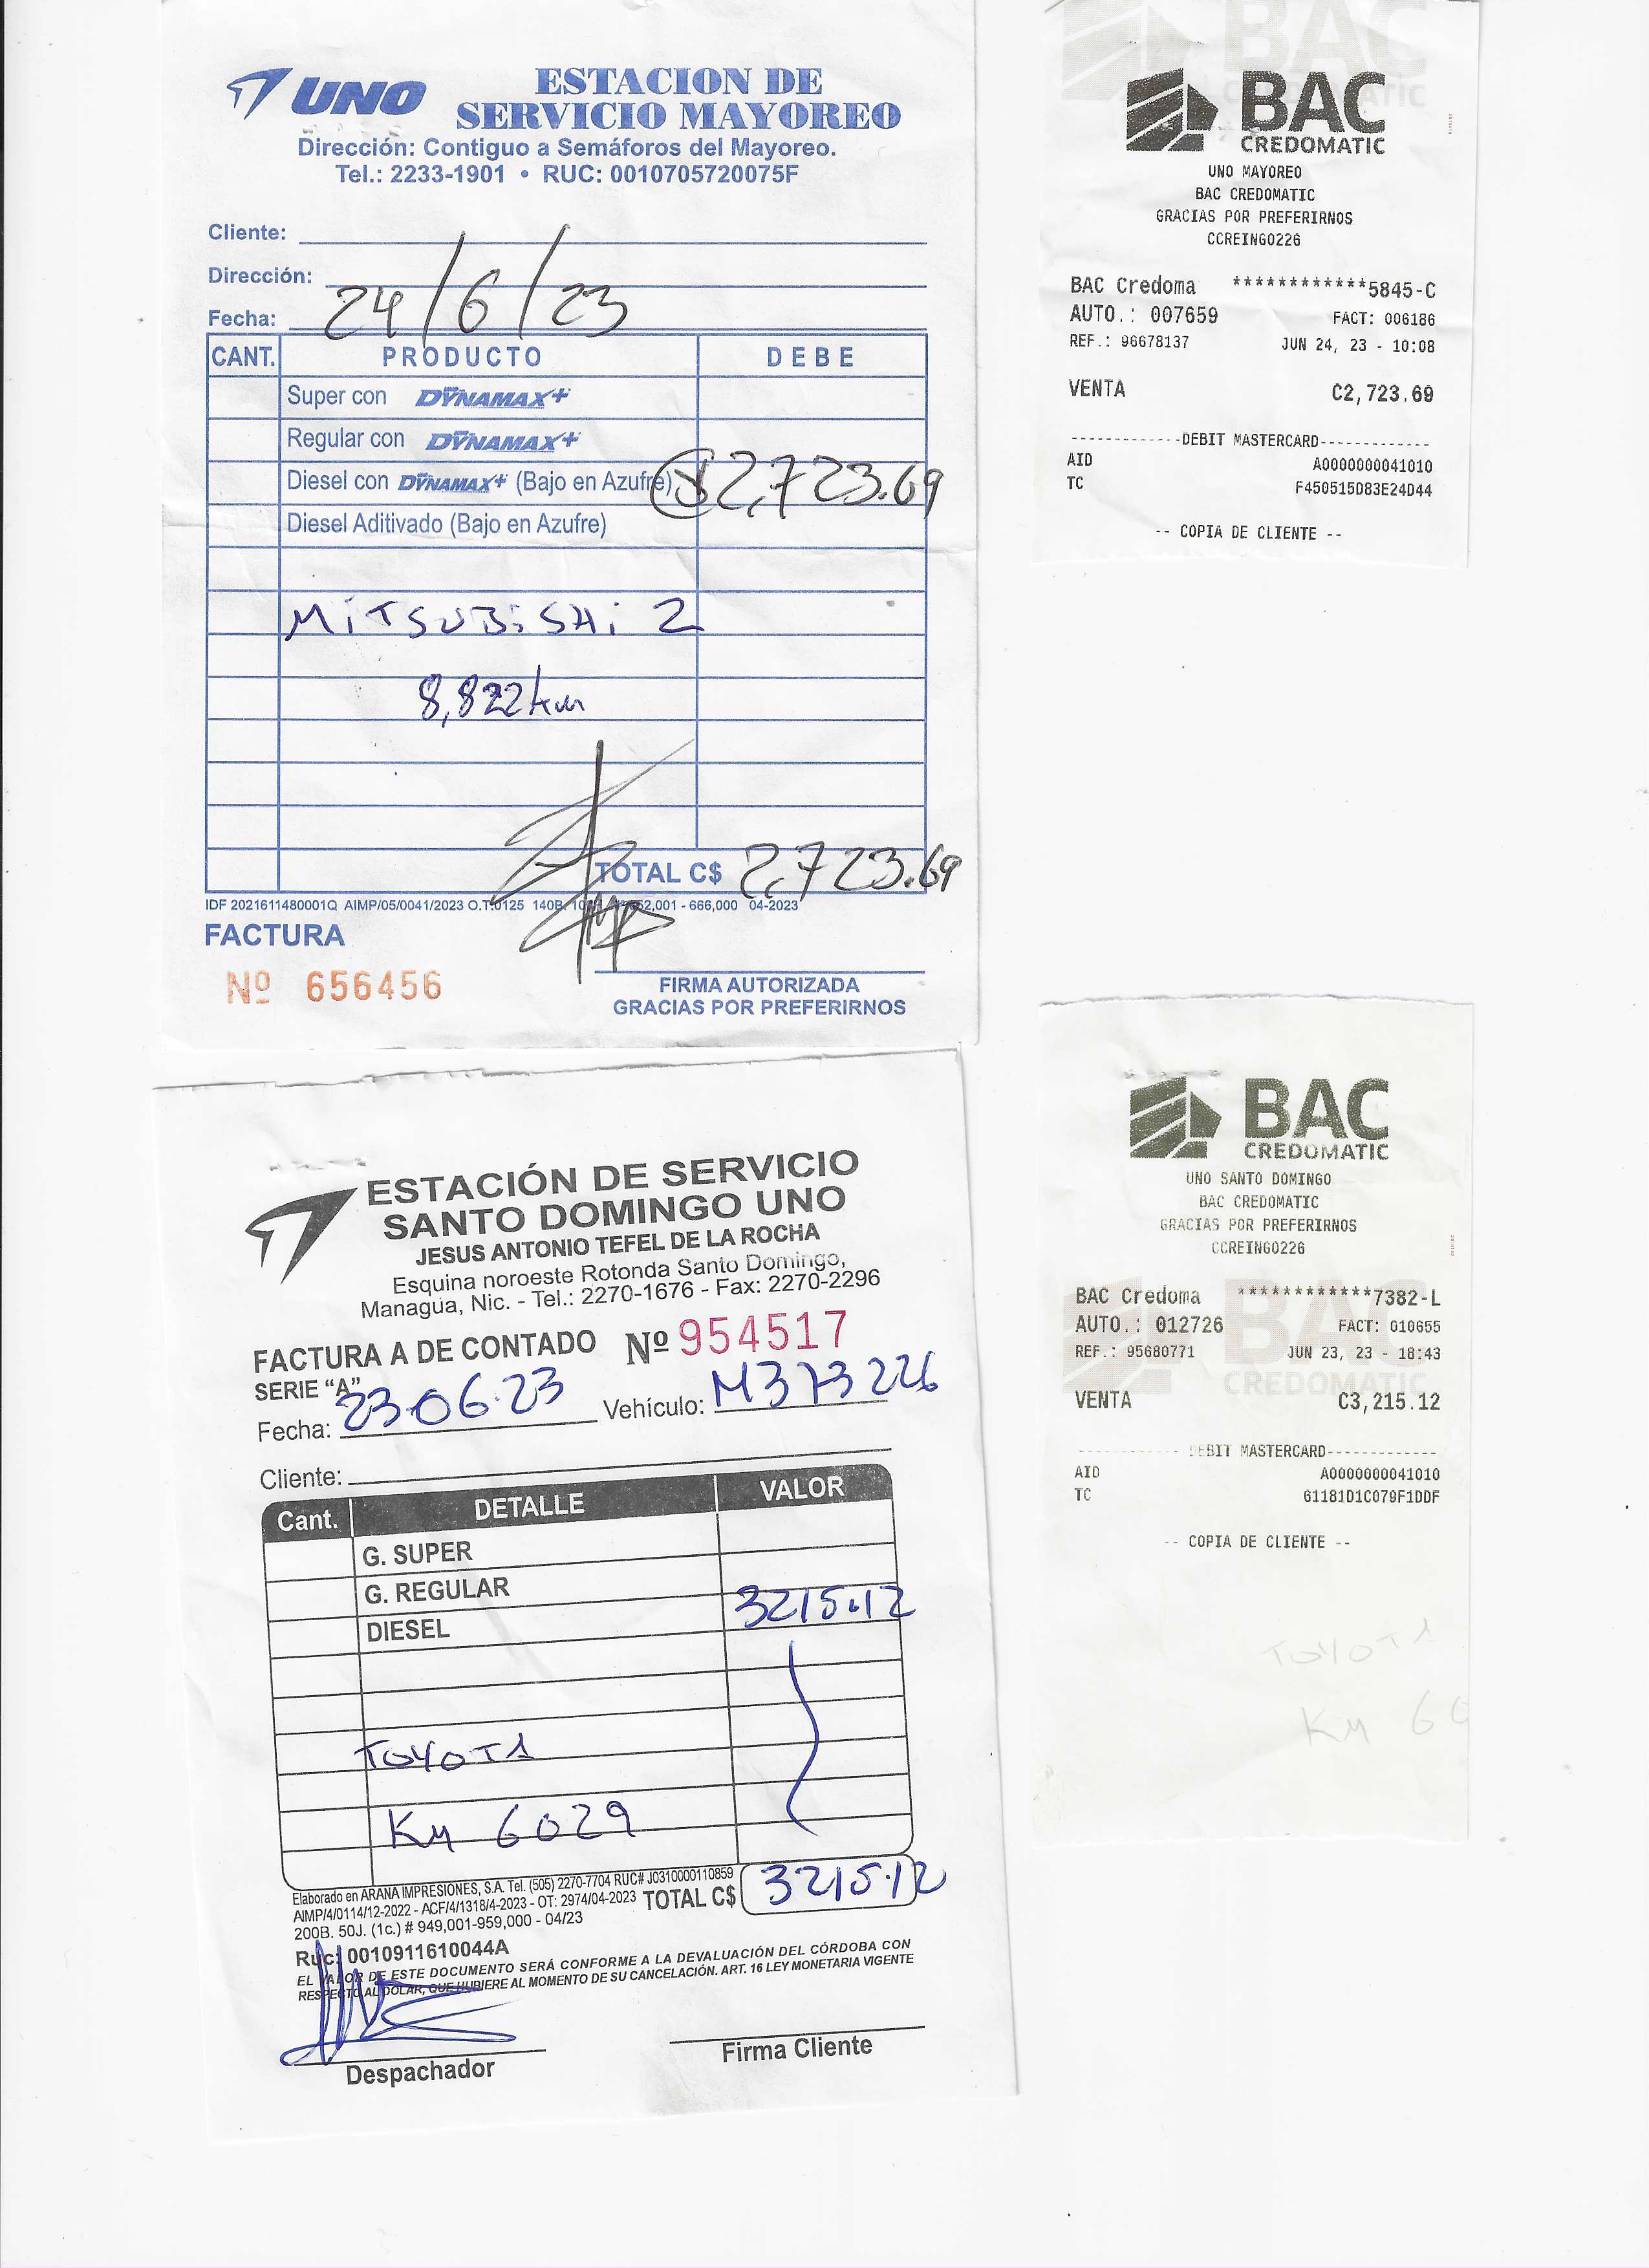 UNO
ESTACION DE
SERVICIO MAYOREO
Dirección: Contiguo a Semáforos del Mayoreo.
Tel.: 2233-1901 • RUC: 0010705720075F
Cliente:
Dirección:
Fecha: 24/6/23
CANT. PRODUCTO DEBE
Super con DYNAMAX+
Regular con DYNAMAX+
Diesel con DYNAMAX+ (Bajo en Azufre) 2,723.69
Diesel Aditivado (Bajo en Azufre)
MiTSUBiSHi 2
8,822 km
TOTAL C$ 2,723.69
IDF 2021611480001Q AIMP/05/0041/2023 O.T.0125 140B. - 666,000 04-2023
FACTURA
Nº 656456
FIRMA AUTORIZADA
GRACIAS POR PREFERIRNOS
BAC
CREDOMATIC
UNO MAYOREO
BAC CREDOMATIC
GRACIAS POR PREFERIRNOS
CCREING0226
BAC Credoma ************5845-C
AUTO.: 007659 FACT: 006186
REF.: 96678137 JUN 24, 23 - 10:08
VENTA C2,723.69
------------DEBIT MASTERCARD-------------
AID A0000000041010
TC F450515D83E24D44
-- COPIA DE CLIENTE --
ESTACIÓN DE SERVICIO
SANTO DOMINGO UNO
JESUS ANTONIO TEFEL DE LA ROCHA
Esquina noroeste Rotonda Santo Domingo,
Managua, Nic. - Tel.: 2270-1676 - Fax: 2270-2296
FACTURA A DE CONTADO Nº 954517
SERIE "A"
Fecha: 23-06-23 Vehículo: M373226
Cliente:
Cant. DETALLE VALOR
G. SUPER
G. REGULAR
DIESEL 3215.12
TOYOTA
KM 6029
Elaborado en ARANA IMPRESIONES, S.A. Tel. (505) 2270-7704 RUC# J0310000110859
AIMP/4/0114/12-2022 - ACF/4/1318/4-2023 - OT: 2974/04-2023
200B. 50J. (1c.) # 949,001-959,000 - 04/23
TOTAL C$ 3215.12
Ruc: 0010911610044A
EL VALOR DE ESTE DOCUMENTO SERÁ CONFORME A LA DEVALUACIÓN DEL CÓRDOBA CON
RESPECTO AL DOLAR, QUE HUBIERE AL MOMENTO DE SU CANCELACIÓN. ART. 16 LEY MONETARIA VIGENTE
Despachador
Firma Cliente
BAC
CREDOMATIC
UNO SANTO DOMINGO
BAC CREDOMATIC
GRACIAS POR PREFERIRNOS
CCREING0226
BAC Credoma ************7382-L
AUTO.: 012726 FACT: 010655
REF.: 95680771 JUN 23, 23 - 18:43
VENTA C3,215.12
------------ DEBIT MASTERCARD-------------
AID A0000000041010
TC 61181D1C079F1DDF
-- COPIA DE CLIENTE --
TOYOTA
KM 60